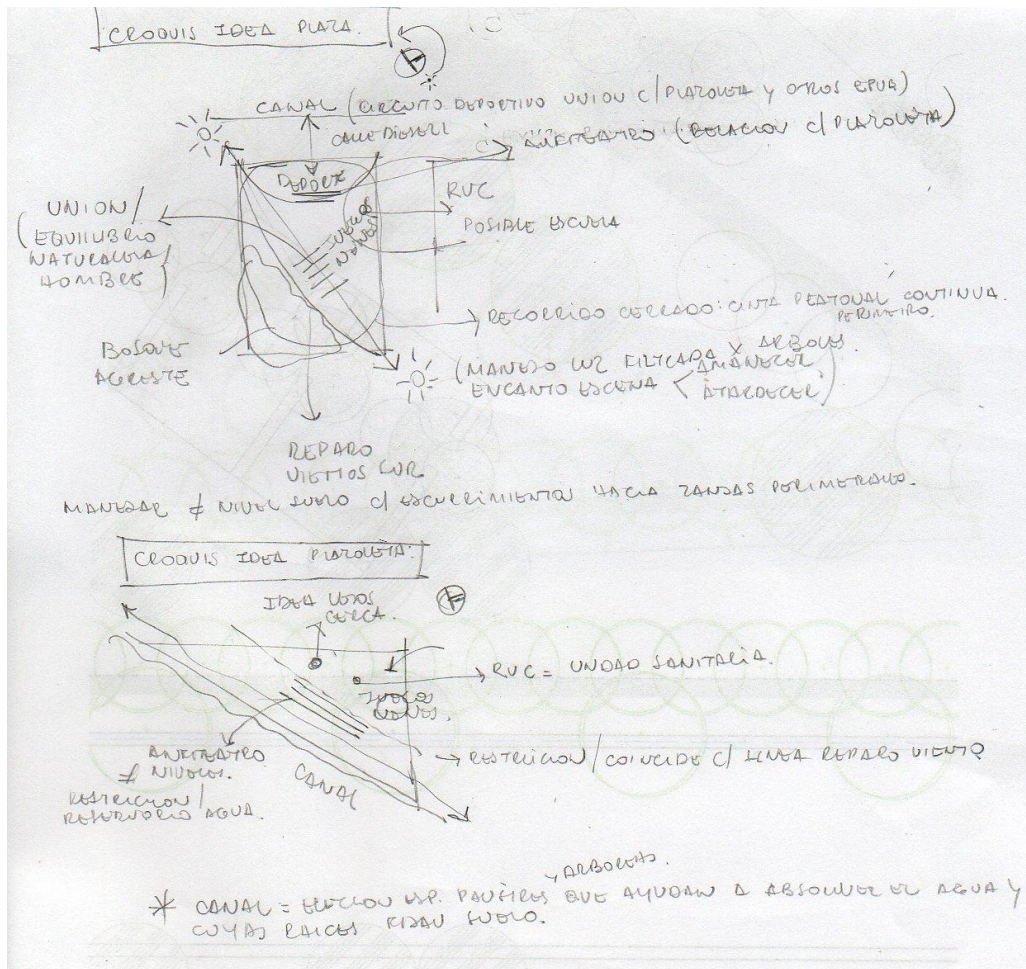 CROQUIS IDEA PLAZA.
CANAL (CIRCUITO DEPORTIVO UNION C/PLAZOLETA Y OTROS EPUA)
CALLE DIESEL
ANFITEATRO (RELACION C/PLAZOLETA)
DEPORTE
RUC
POSIBLE ESCUELA
JUEGOS
NENES
UNION/
EQUILIBRIO
NATURALEZA/
HOMBRE
RECORRIDO CERRADO: CINTA PEATONAL CONTINUA.
PERIMETRO.
BOSQUE
AGRESTE
(MANEJO LUZ FILTRADA X ARBOLES.
ENCANTO ESCENA < AMANECER,
ATARDECER)
REPARO
VIENTOS SUR
MANEJAR ≠ NIVEL SUELO C/ ESCURRIMIENTO HACIA ZANJAS PERIMETRALES.
CROQUIS IDEA PLAZOLETA:
IDEA LEJOS
CERCA.
RUC = UNIDAD SANITARIA.
JUEGOS
NENES.
ANFITEATRO
≠ NIVELES.
RESTRICION/
RESERVORIO AGUA.
CANAL
RESTRICION/COINCIDE C/ LINEA REPARO VIENTO
ARBOREAS.
* CANAL = ELECCION ESP. QUE AYUDAN A ABSORVER EL AGUA Y
CUYAS RAICES FIJAN SUELO.